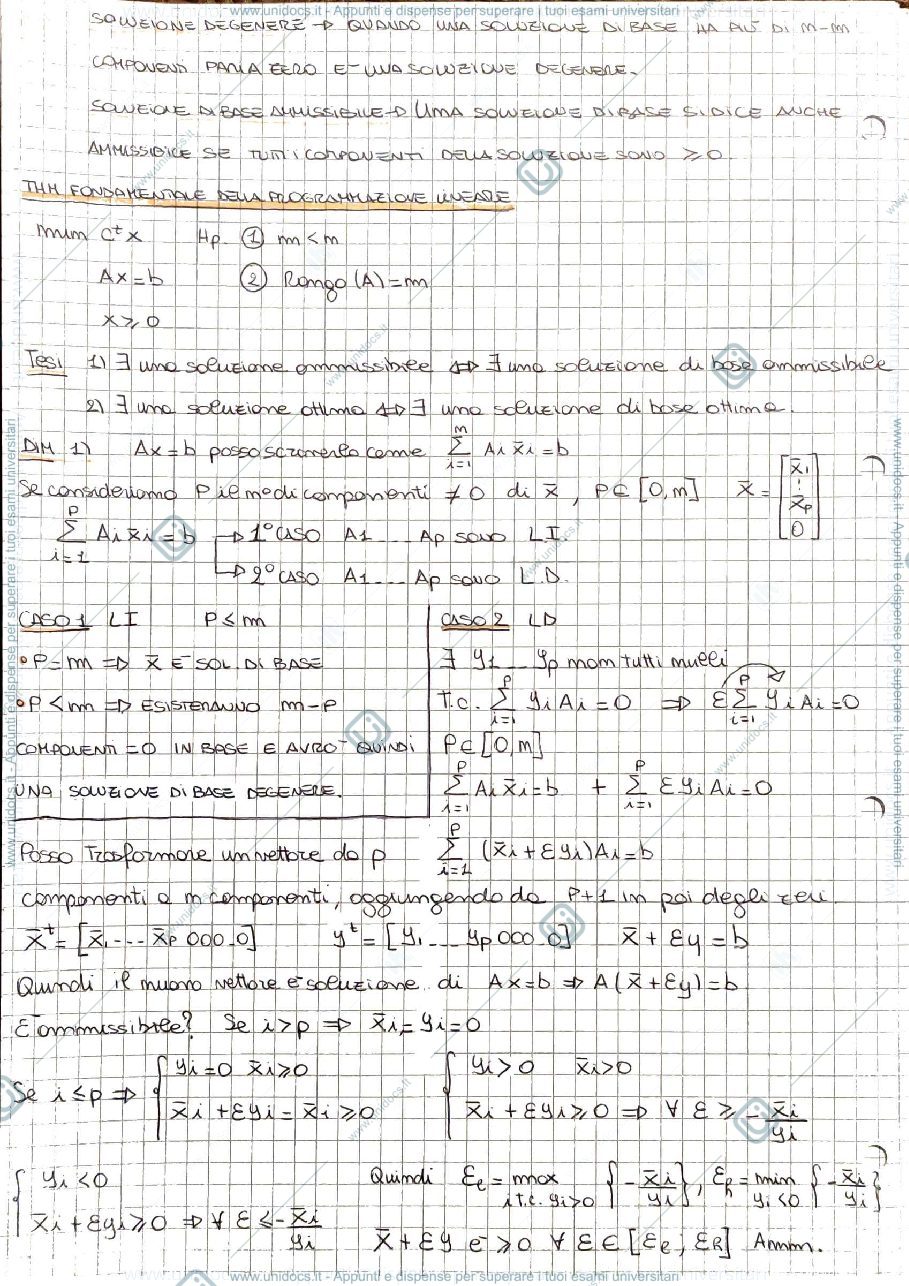 www.unidocs.it - Appunti e dispense per superare i tuoi esami universitari
SOLUZIONE DEGENERE → QUANDO UNA SOLUZIONE DI BASE HA PIÙ DI n-m
COMPONENTI PARI A ZERO E' UNA SOLUZIONE DEGENERE.
SOLUZIONE DI BASE AMMISSIBILE → UNA SOLUZIONE DI BASE SI DICE ANCHE
AMMISSIBILE SE TUTTI I COMPONENTI DELLA SOLUZIONE SONO ≥ 0
THM FONDAMENTALE DELLA PROGRAMMAZIONE LINEARE
min cᵗx Hp. ① m < n
Ax = b ② Rango (A) = m
x ≥ 0
Tesi 1) ∃ una soluzione ammissibile ⇔ ∃ una soluzione di base ammissibile
2) ∃ una soluzione ottima ⇔ ∃ una soluzione di base ottima.
DIM 1) Ax = b posso scriverlo come Σ_{i=1}^{n} Ai x̄i = b
Se consideriamo P il n° di componenti ≠ 0 di x̄, P ∈ [0,n] x̄ = [x̄1 ⋮ x̄p 0]
Σ_{i=1}^{P} Ai x̄i = b → 1° CASO A1 ... Ap SONO LI
→ 2° CASO A1 ... Ap SONO L.D.
CASO 1 LI P ≤ m
• P = m ⇒ x̄ E' SOL. DI BASE
• P < m ⇒ ESISTERANNO m-P
COMPONENTI = 0 IN BASE E AVRO' QUINDI
UNA SOLUZIONE DI BASE DEGENERE.
CASO 2 LD
∃ y1 ... yp non tutti nulli
T.c. Σ_{i=1}^{P} yi Ai = 0 ⇒ ε Σ_{i=1}^{P} yi Ai = 0
P ∈ [0,n]
Σ_{i=1}^{P} Ai x̄i = b + Σ_{i=1}^{P} ε yi Ai = 0
Σ_{i=1}^{P} (x̄i + ε yi) Ai = b
Posso Trasformare un vettore da p
componenti a n componenti, aggiungendo da P+1 in poi degli zeri
x̄ᵗ = [x̄1 ... x̄p 000..0] yᵗ = [y1 ... yp 000..0] x̄ + εy = b
Quindi il nuovo vettore è soluzione di Ax = b ⇒ A(x̄ + εy) = b
E' ammissibile? Se i > p ⇒ x̄i = yi = 0
Se i ≤ p ⇒ { yi = 0 x̄i ≥ 0 { yi > 0 x̄i > 0
x̄i + εyi = x̄i ≥ 0 x̄i + εyi ≥ 0 ⇒ ∀ ε ≥ - x̄i/yi
{ yi < 0 Quindi εe = max_{i T.c. yi>0} { - x̄i/yi }, εR = min_{yi<0} { - x̄i/yi }
x̄i + εyi ≥ 0 ⇒ ∀ ε ≤ - x̄i/yi x̄ + εy è ≥ 0 ∀ ε ∈ [εe, εR] Amm.
www.unidocs.it - Appunti e dispense per superare i tuoi esami universitari